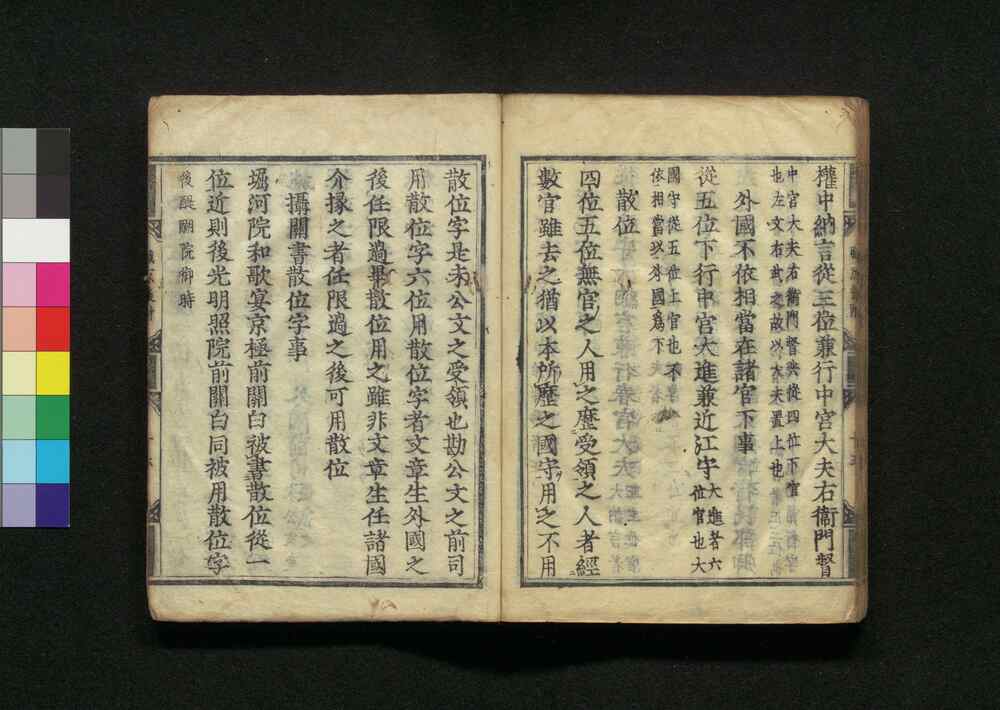 權中納言從三位兼行中宮大夫右衛門督
中宮大夫右衛門督共從四位下官
也左文右武之故以大夫置上也
外國不依相當在諸官下事
從五位下行中宮大進兼近江守
大進者六
位官也大
國守從五位上官也不
依相當以外國爲下
散位
四位五位無官之人用之歷受領之人者經
數官雖去之猶以本所歷之國守用之不用
散位字是未公文之受領也勘公文之前司
用散位字六位用散位字者文章生外國之
後任限過畢散位用之雖非文章生任諸國
介掾之者任限過之後可用散位
攝關書散位字事
堀河院和歌宴京極前關白被書散位從一
位近則後光明照院前關白同被用散位字
後醍醐院御時